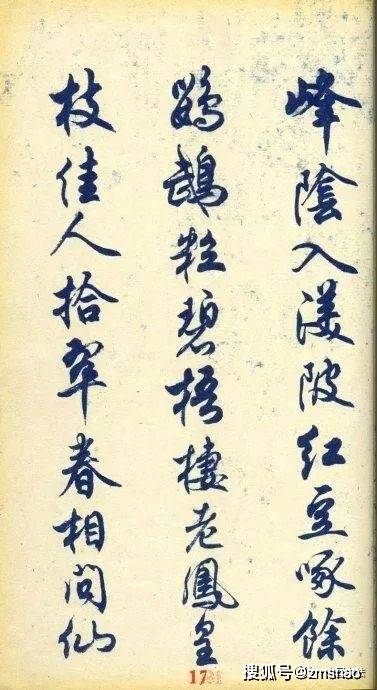 峰陰入渼陂紅豆啄餘
鸚鵡粒碧梧棲老鳳皇
枝佳人拾翠春相問仙
搜狐号@zmshao